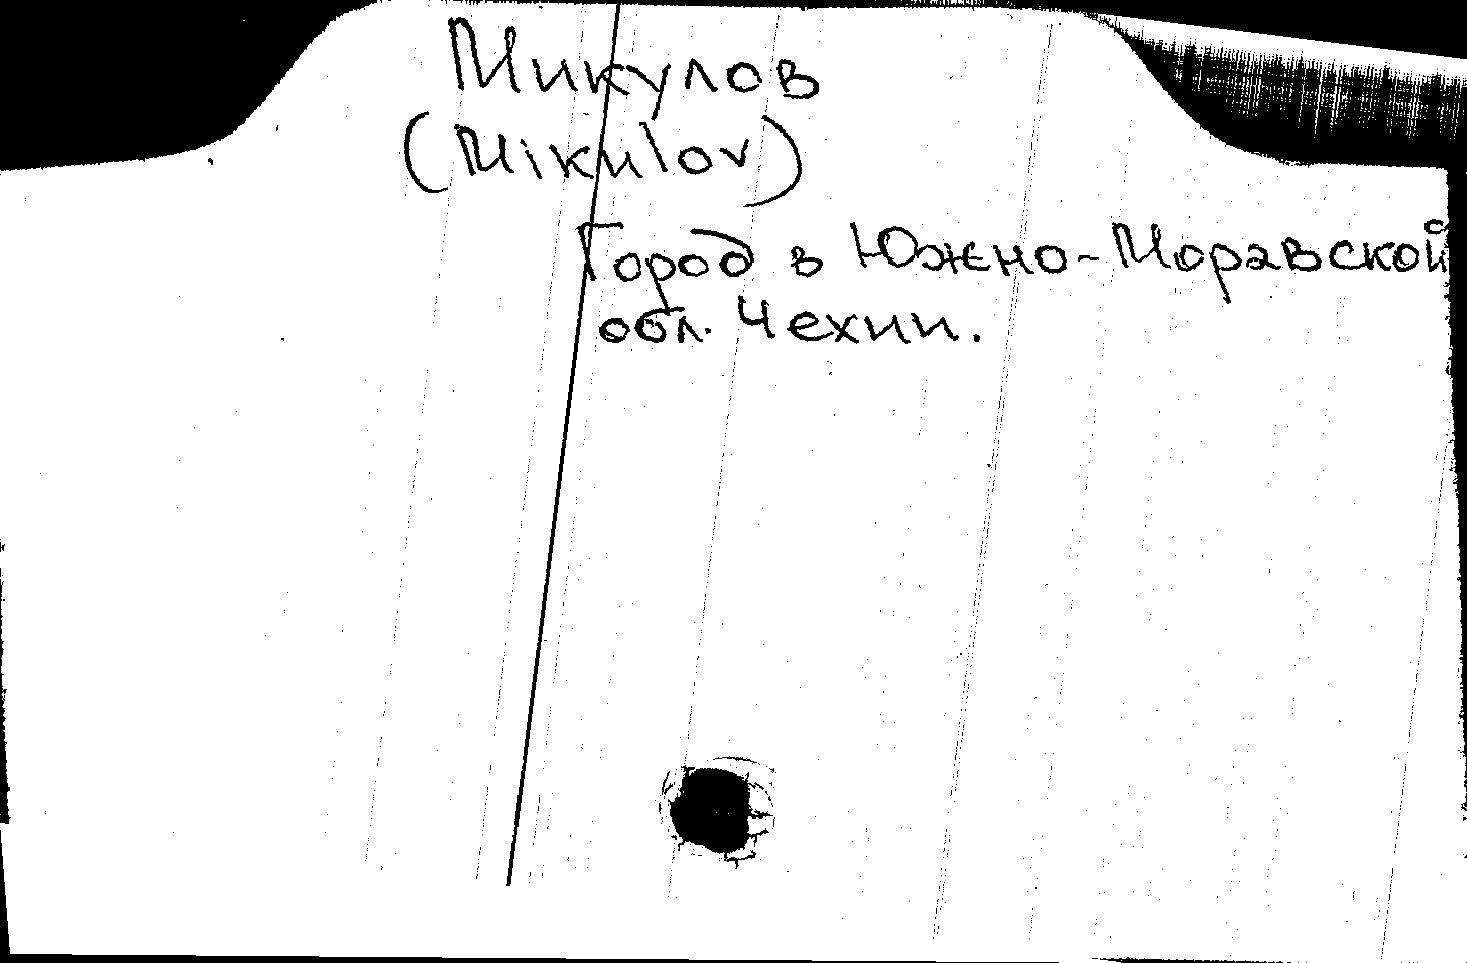 Микулов
(Mikulov)
Город в Южно-Моравской
обл. Чехии.